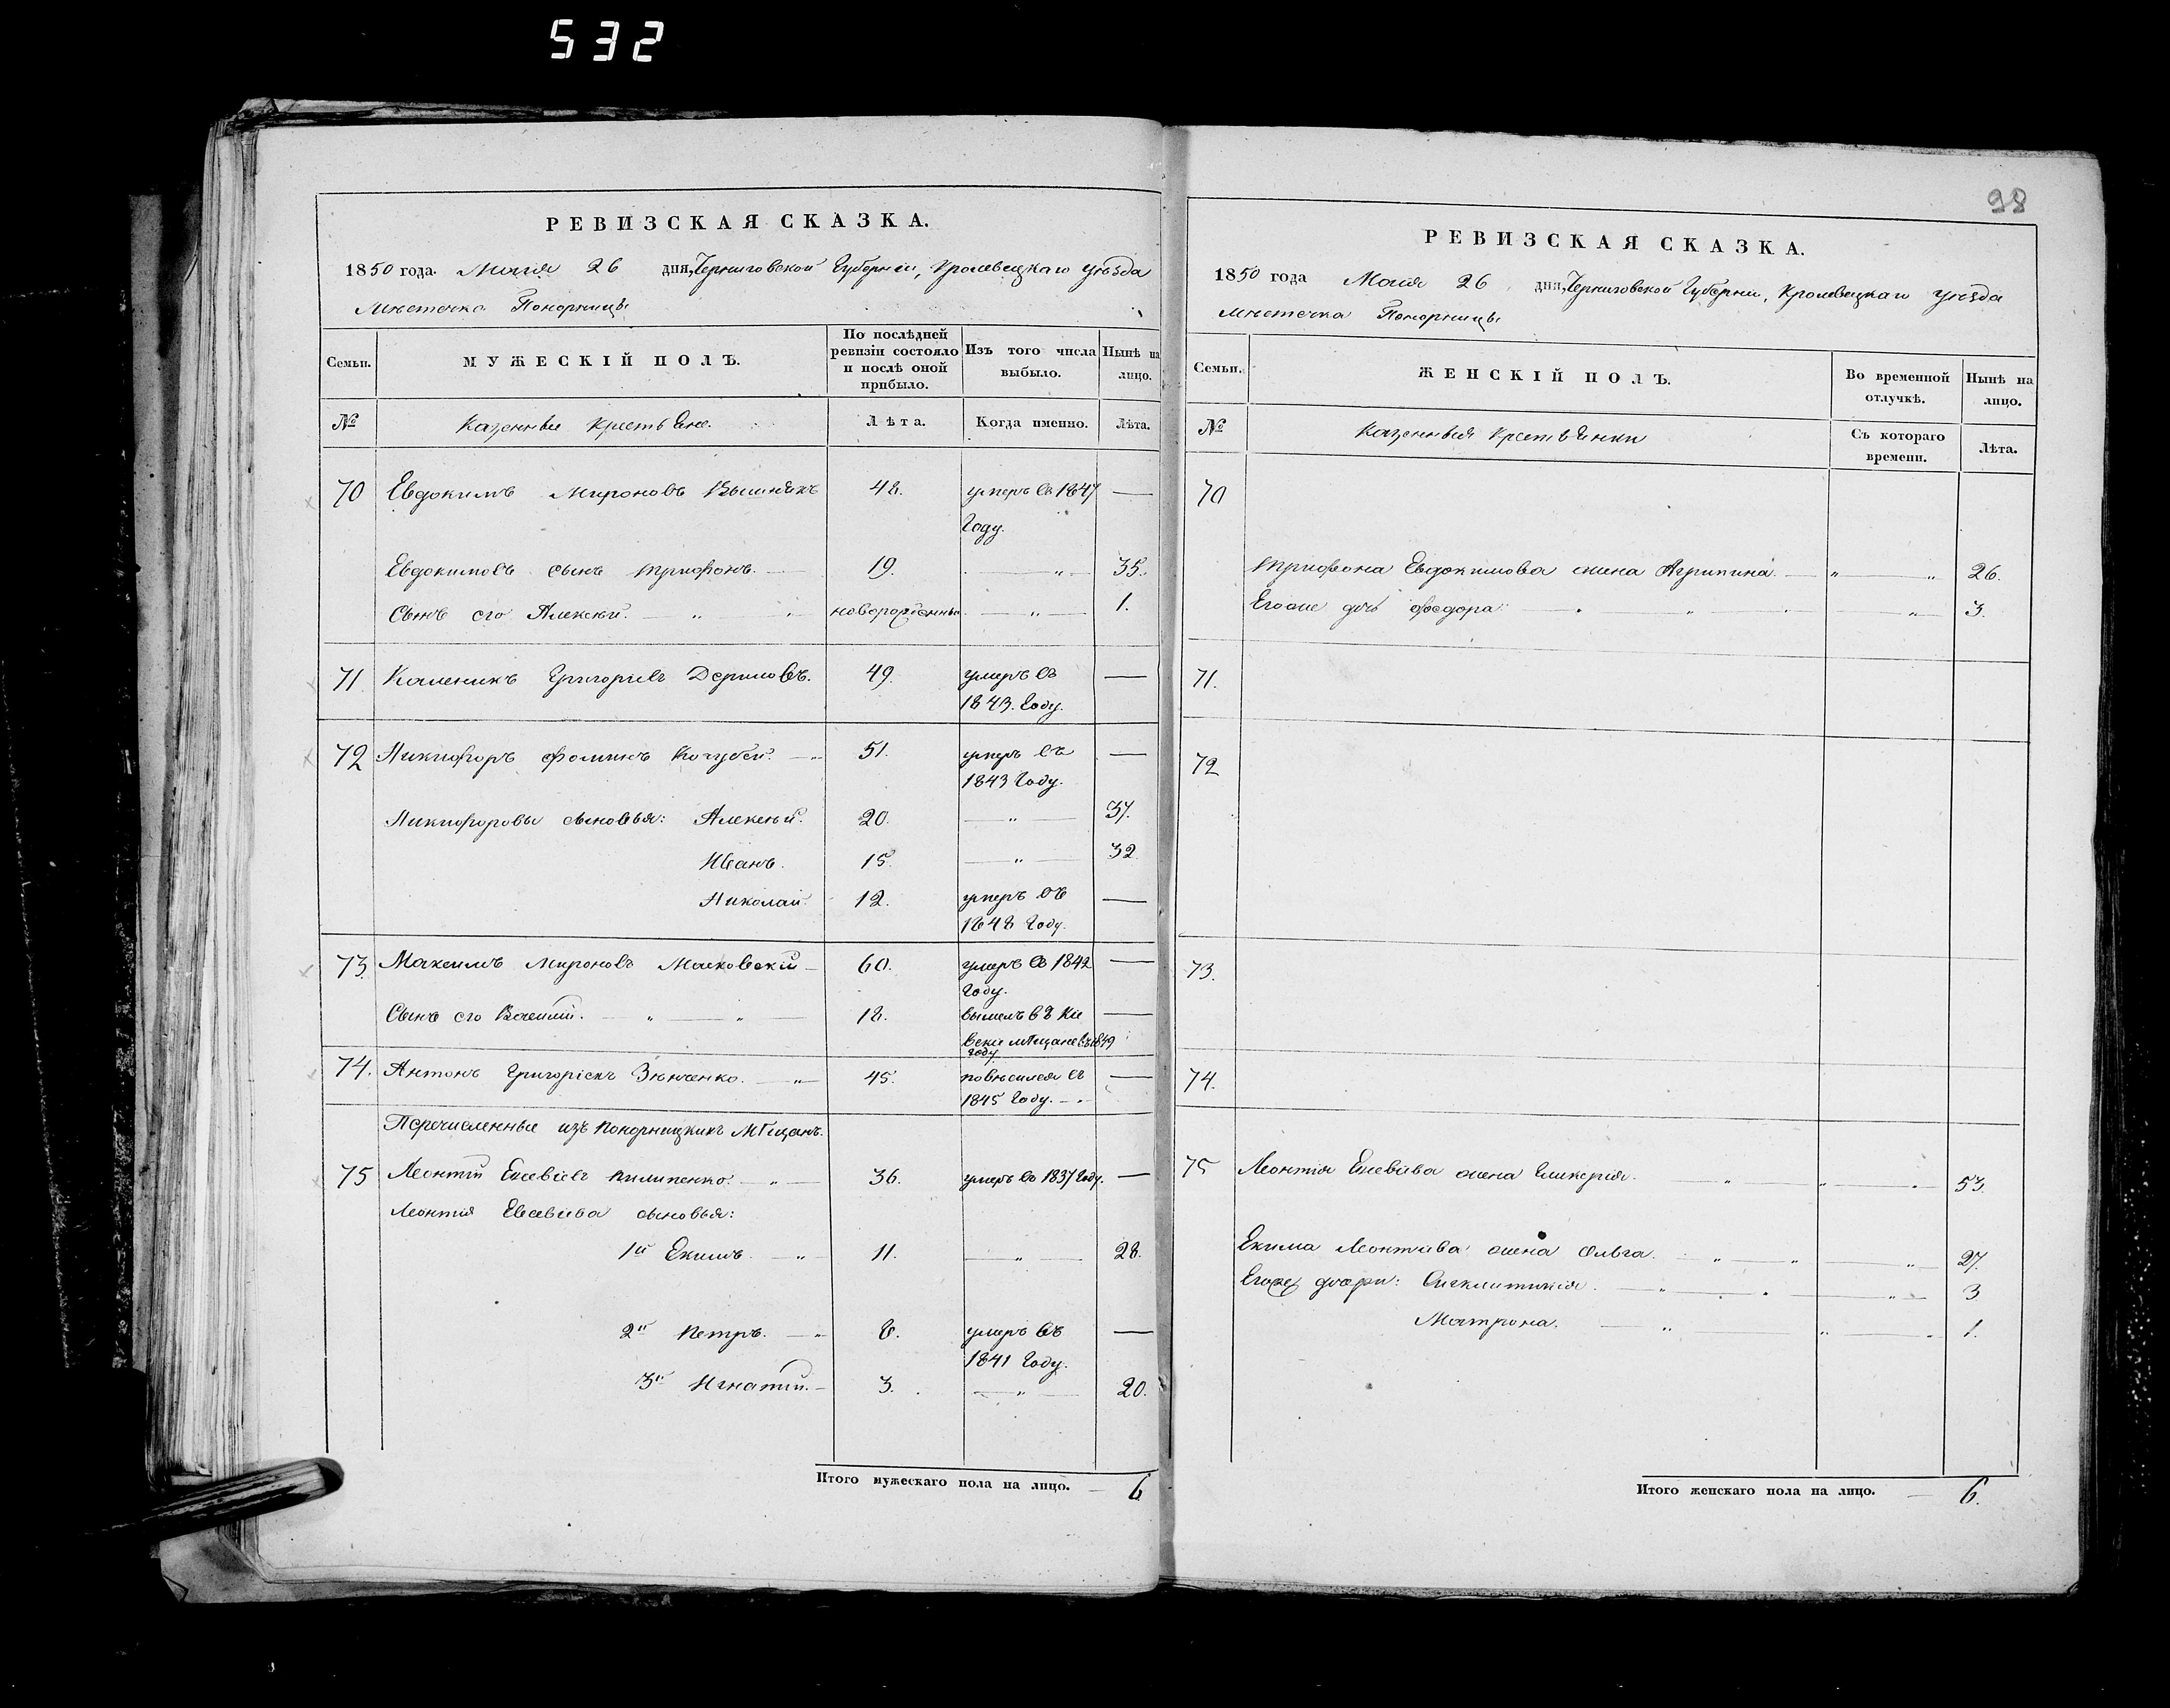 532
РЕВИЗСКАЯ СКАЗКА.
1850 года. Маія 26 дня, Черниговской Губерніи, Кролевецкаго уѣзда
Мѣстечка Понорницы
Семьи.
МУЖЕСКІЙ ПОЛЪ.
По послѣдней ревизіи состояло и послѣ оной прибыло.
Изъ того числа выбыло.
Нынѣ на лицо.
№
Казенные крестьяне.
Лѣта.
Когда именно.
Лѣта.
70 Евдокимъ Мироновъ Вишнякъ 48. умеръ въ 1847 —
году.
Евдокимовъ сынъ Трифонъ. — 19. — „ — 35.
Сынъ его Алексѣй. — „ — „ новорожденный — „ — 1.
71 Каленикъ Григорьевъ 49. умеръ въ —
1843. году.
72 Никифоръ Фоминъ Кочубей. — „ 51. умеръ въ —
1843 году.
Никифоровы сыновья: Алексѣй. 20. — „ — 37.
Иванъ. 15. — „ — 32.
Николай. 12. умеръ въ —
1848 году.
73. Максимъ Мироновъ Масковскій — 60. умеръ въ 1842 —
году.
Сынъ его Василій. — „ — „ — 18. вышелъ въ Кіе —
вскіе мѣщане въ 1849
году
74. Антонъ Григорьевъ Зѣнченко. — „ — 45. повѣсился въ —
1845 году. —
Перечисленные изъ понорницкихъ мѣщанъ.
75 Леонтій Евсевіевъ Пилипенко. — „ — 36. умеръ въ 1837 году. —
Леонтія Евсевіева сыновья:
1й Екимъ. — „ 11. — „ — 28.
2й Петръ. — „ 8. умеръ въ —
1841 году.
3й Игнатій. — 3. — „ — 20.
Итого мужескаго пола на лицо. — 6
98
РЕВИЗСКАЯ СКАЗКА.
1850 года Маія 26 дня, Черниговской Губерніи, Кролевецкаго уѣзда
Мѣстечка Понорницы
Семьи.
ЖЕНСКІЙ ПОЛЪ.
Во временной отлучкѣ.
Нынѣ на лицо.
№
Казенныя крестьянки
Съ котораго времени.
Лѣта.
70
Трифона Евдокимова жена Агрипина. — „ — „ 26.
Егоже дочь Федора: „ — „ — 3.
71.
72
73.
74.
75 Леонтія Евсевіева жена Гликерія. „ „ — „ 53.
Екима Леонтіева жена Ольга. „ — „ — „ 27.
Егоже дочери: Сигклитикія. — „ — „ — 3
Матрона. — „ „ — „ 1.
Итого женскаго пола на лицо. — 6.